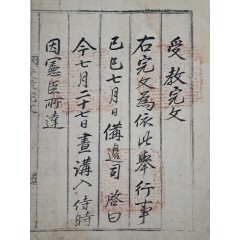 受教完文
右完文為依此擧行事
己巳七月日備邊司 啓曰
今七月二十七日晝講入侍時
因憲臣所達